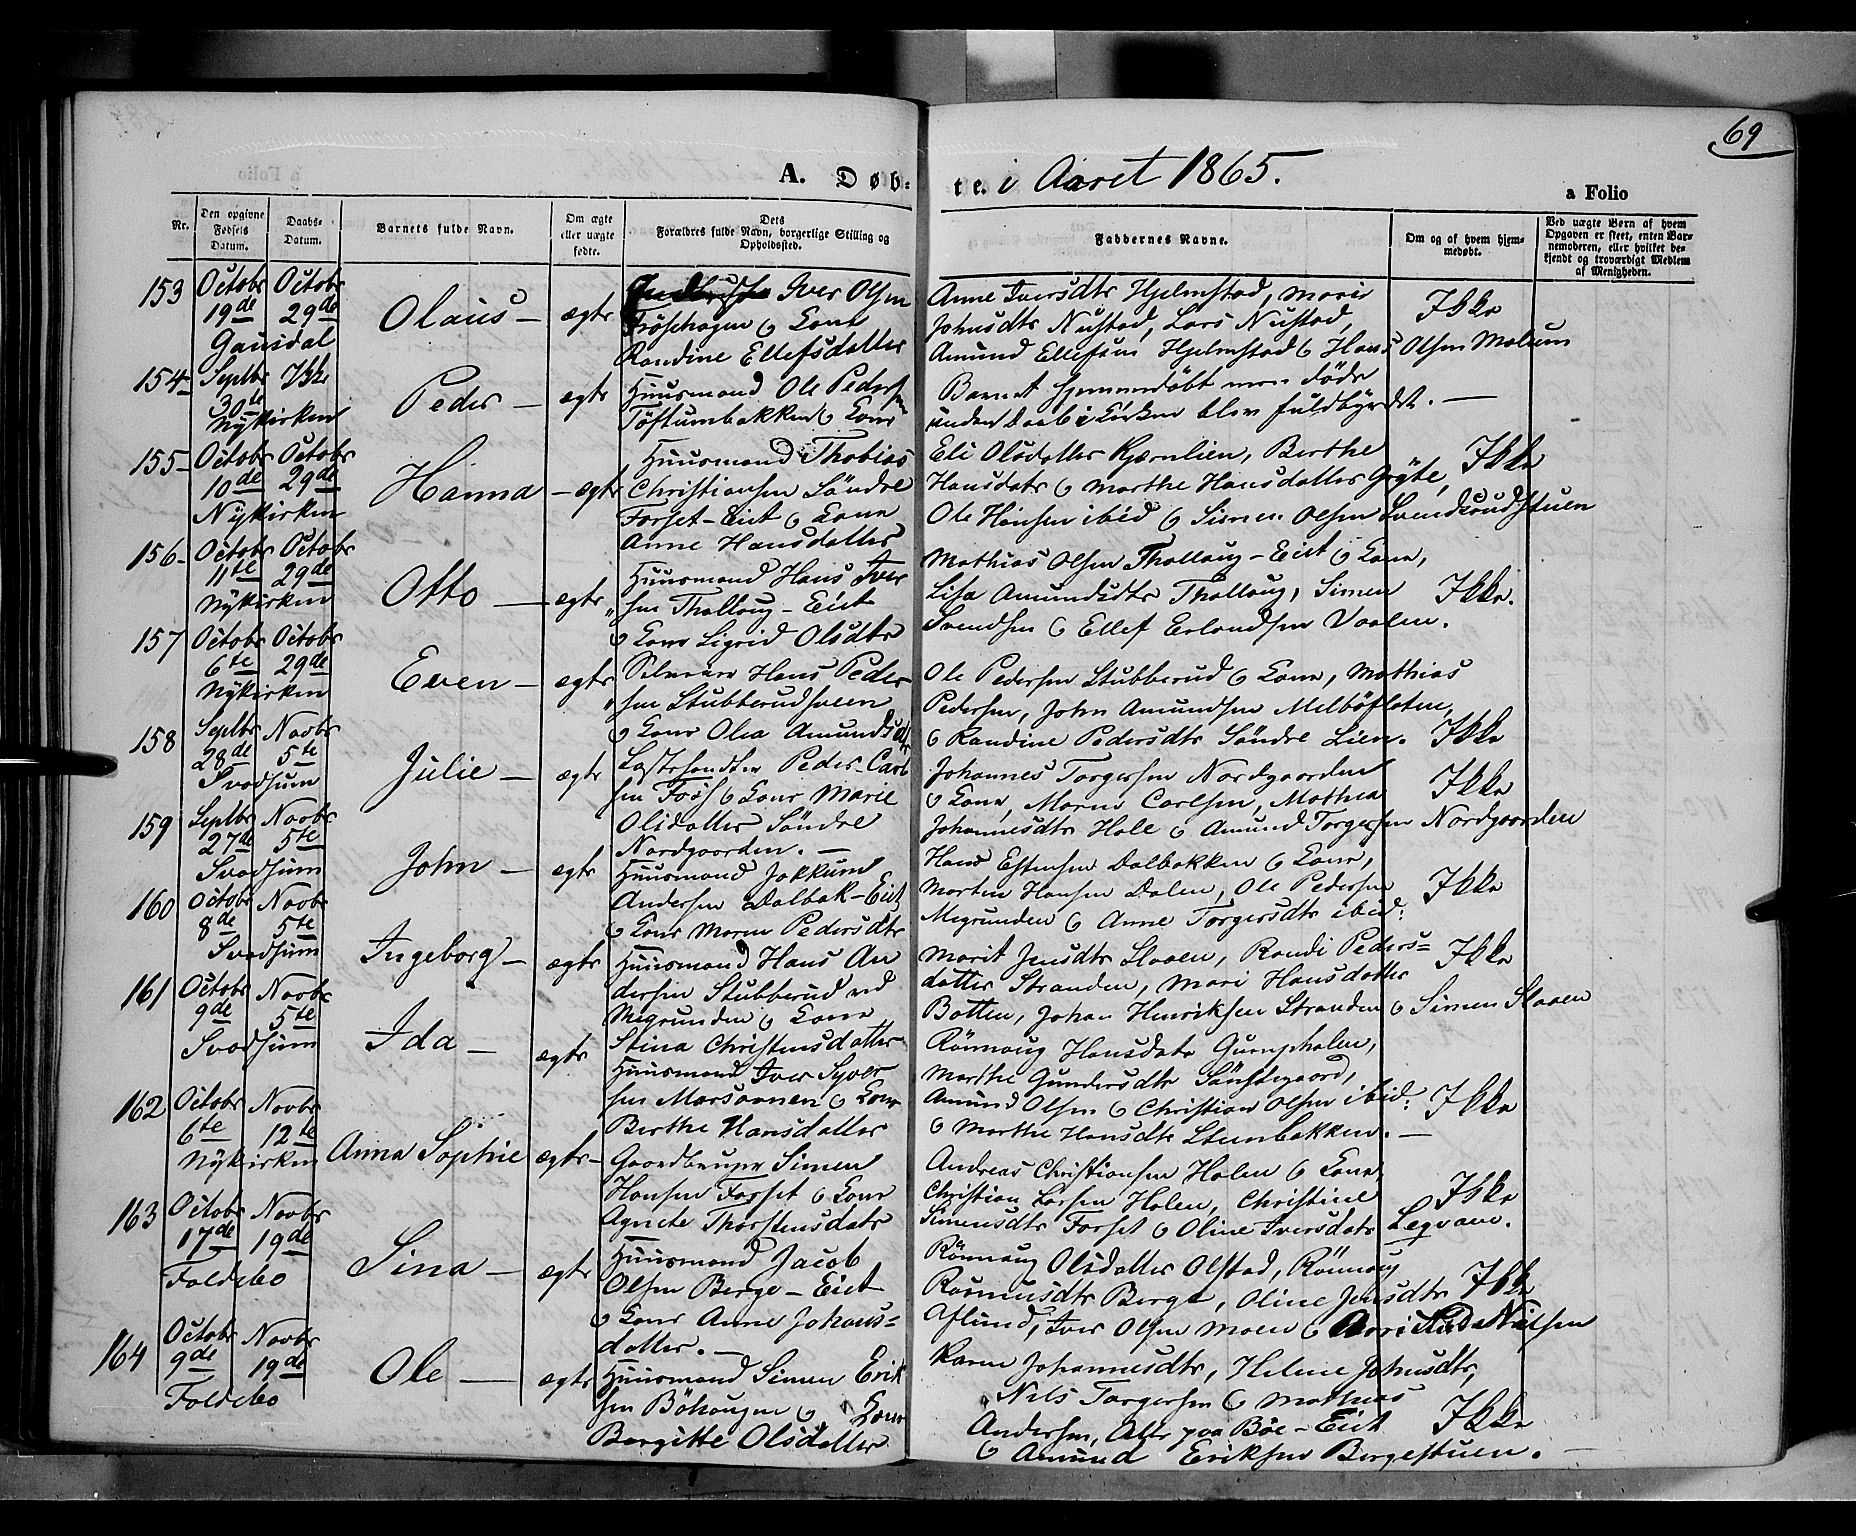 69
A. Døb-
te. i Aaret 1865.
a Folio
Nr.
Den opgivne Fødsels Datum.
Daabs-Datum.
Barnets fulde Navn.
Om ægte eller uægte fødte.
Dets Forældres fulde Navn, borgerlige Stilling og Opholdssted.
Faddernes Navne.
Om og af hvem hjemmedøbt.
Ved uægte Børn af hvem Opgaven er skeet, enten Barnemoderen, eller hvilket bekjendt og troværdigt Medlem af Menigheden.
153 Octobr 19de Octobr 29de Gausdal
Olaus – ægte
Iver Olsen
Fröshagen & Kone
Randine Ellefsdatter
Anne Iversdtr Hjelmstad, Marie
Johnsdtr Nustad, Lars Nustad,
Amund Ellefsen Hjelmstad & Hans Olsen Melum
Ikke
154 Septbr 30te Ikke Nykirken
Peder – ægte
Huusmand Ole Pedersen
Töftumbakken & Kone
Barnet hjemmedöbt men döde
inden Daab i Kirken blev fuldbyrdet. –
155 Octobr 10de Octobr 29de Nykirken
Hanna – ægte
Huusmand Thobias
Christiansen Söndre
Forset-Eiet & Kone
Anne Hansdatter
Eli Olsdatter Kjærnlien, Berthe
Hansdatr & Marthe Hansdatter Gryte,
Ole Hansen ibid & Simen Olsen Svendsrudstuen
Ikke
156 Octobr 11te Octobr 29de Nykirken
Otto – ægte
Huusmand Hans Iver
sen Thallaug-Eiet
& Kone Sigrid Olsdtr
Mathias Olsen Thallaug-Eiet & Kone,
Lisa Amundsdtr Thallaug, Simen
Svendsen & Ellef Erlandsen Vaalen.
Ikke.
157 Octobr 6te Octobr 29de Nykirken
Even – ægte
Hans Peder
sen Stubberudsveen
& Kone Olea Amundsdtr
Ole Pedersen Stubberud & Kone, Mathias
Pedersen, John Amundsen Melböfloten,
& Randine Pedersdtr Söndre Lien.
Ikke
158 Septbr 28de Novbr 5te Svadsum
Julie – ægte
Peder Carl
sen Foss & Kone Marie
Olsdatter Söndre
Nordgaarden. –
Johannes Torgersen Nordgaarden
& Kone, Maren Carlsen, Mathea
Johannesdtr Hole & Amund Torgersen Nordgaarden
Ikke
159 Septbr 27de Novbr 5te Svadsum
John – ægte
Huusmand Jokkum
Andersen Dalbak-Eiet
& Kone Maren Pedersdtr
Hans Estensen Dalbakken & Kone,
Morten Hansen Dalen, Ole Pedersen
Megrunden & Anne Torgersdtr ibid:
Ikke
160 Octobr 8de Novbr 5te Svadsum
Ingeborg – ægte
Huusmand Hans An
dersen Stubberud ved
Megrunden & Kone
Stina Christensdatter
Marit Jensdtr Slaaen, Randi Peders-
datter Stranden, Mari Hansdatter
Botten, Johan Henriksen Stranden & Simen Slaaen
Ikke
161 Octobr 9de Novbr 5te Svadsum
Ida – ægte
Huusmand Iver Syver
sen & Kone
Berthe Hansdatter
Rönnaug Hansdatr
Marthe Gundersdtr
Amund Olsen & Christian Olsen ibid:
& Marthe Hansdtr Steinbakken. –
Ikke
162 Octobr 6te Novbr 12te Nykirken
Anna Sophie ægte –
Gaardbruger Simen
Hansen Forset & Kone
Agnete Thorstensdatr
Andreas Christiansen Holen & Kone,
Christian Larsen Holen, Christine
Simensdtr Forset & Oline Iversdatr Legvam.
Ikke
163 Octobr 17de Novbr 19de Foldebo
Sina – ægte
Huusmand Jacob
Olsen Berge-Eiet
& Kone Anne Johans-
datter. –
Rönnaug Olsdatter Olstad, Rönnaug
Rasmusdtr Berge, Oline Jensdtr
Aflund, Iver Olsen Moen & Nilsen
Ikke
164 Octobr 9de Novbr 19de Foldebo
Ole – ægte
Huusmand Simen Erik
sen Böhaugen & Kone
Bergitte Olsdatter
Karen Johannesdtr, Helene Johnsdtr,
Nils Torgersen & Mathias
Andersen, Alle paa Böe-Eiet
& Amund Eriksen Bergestuen. –
Ikke